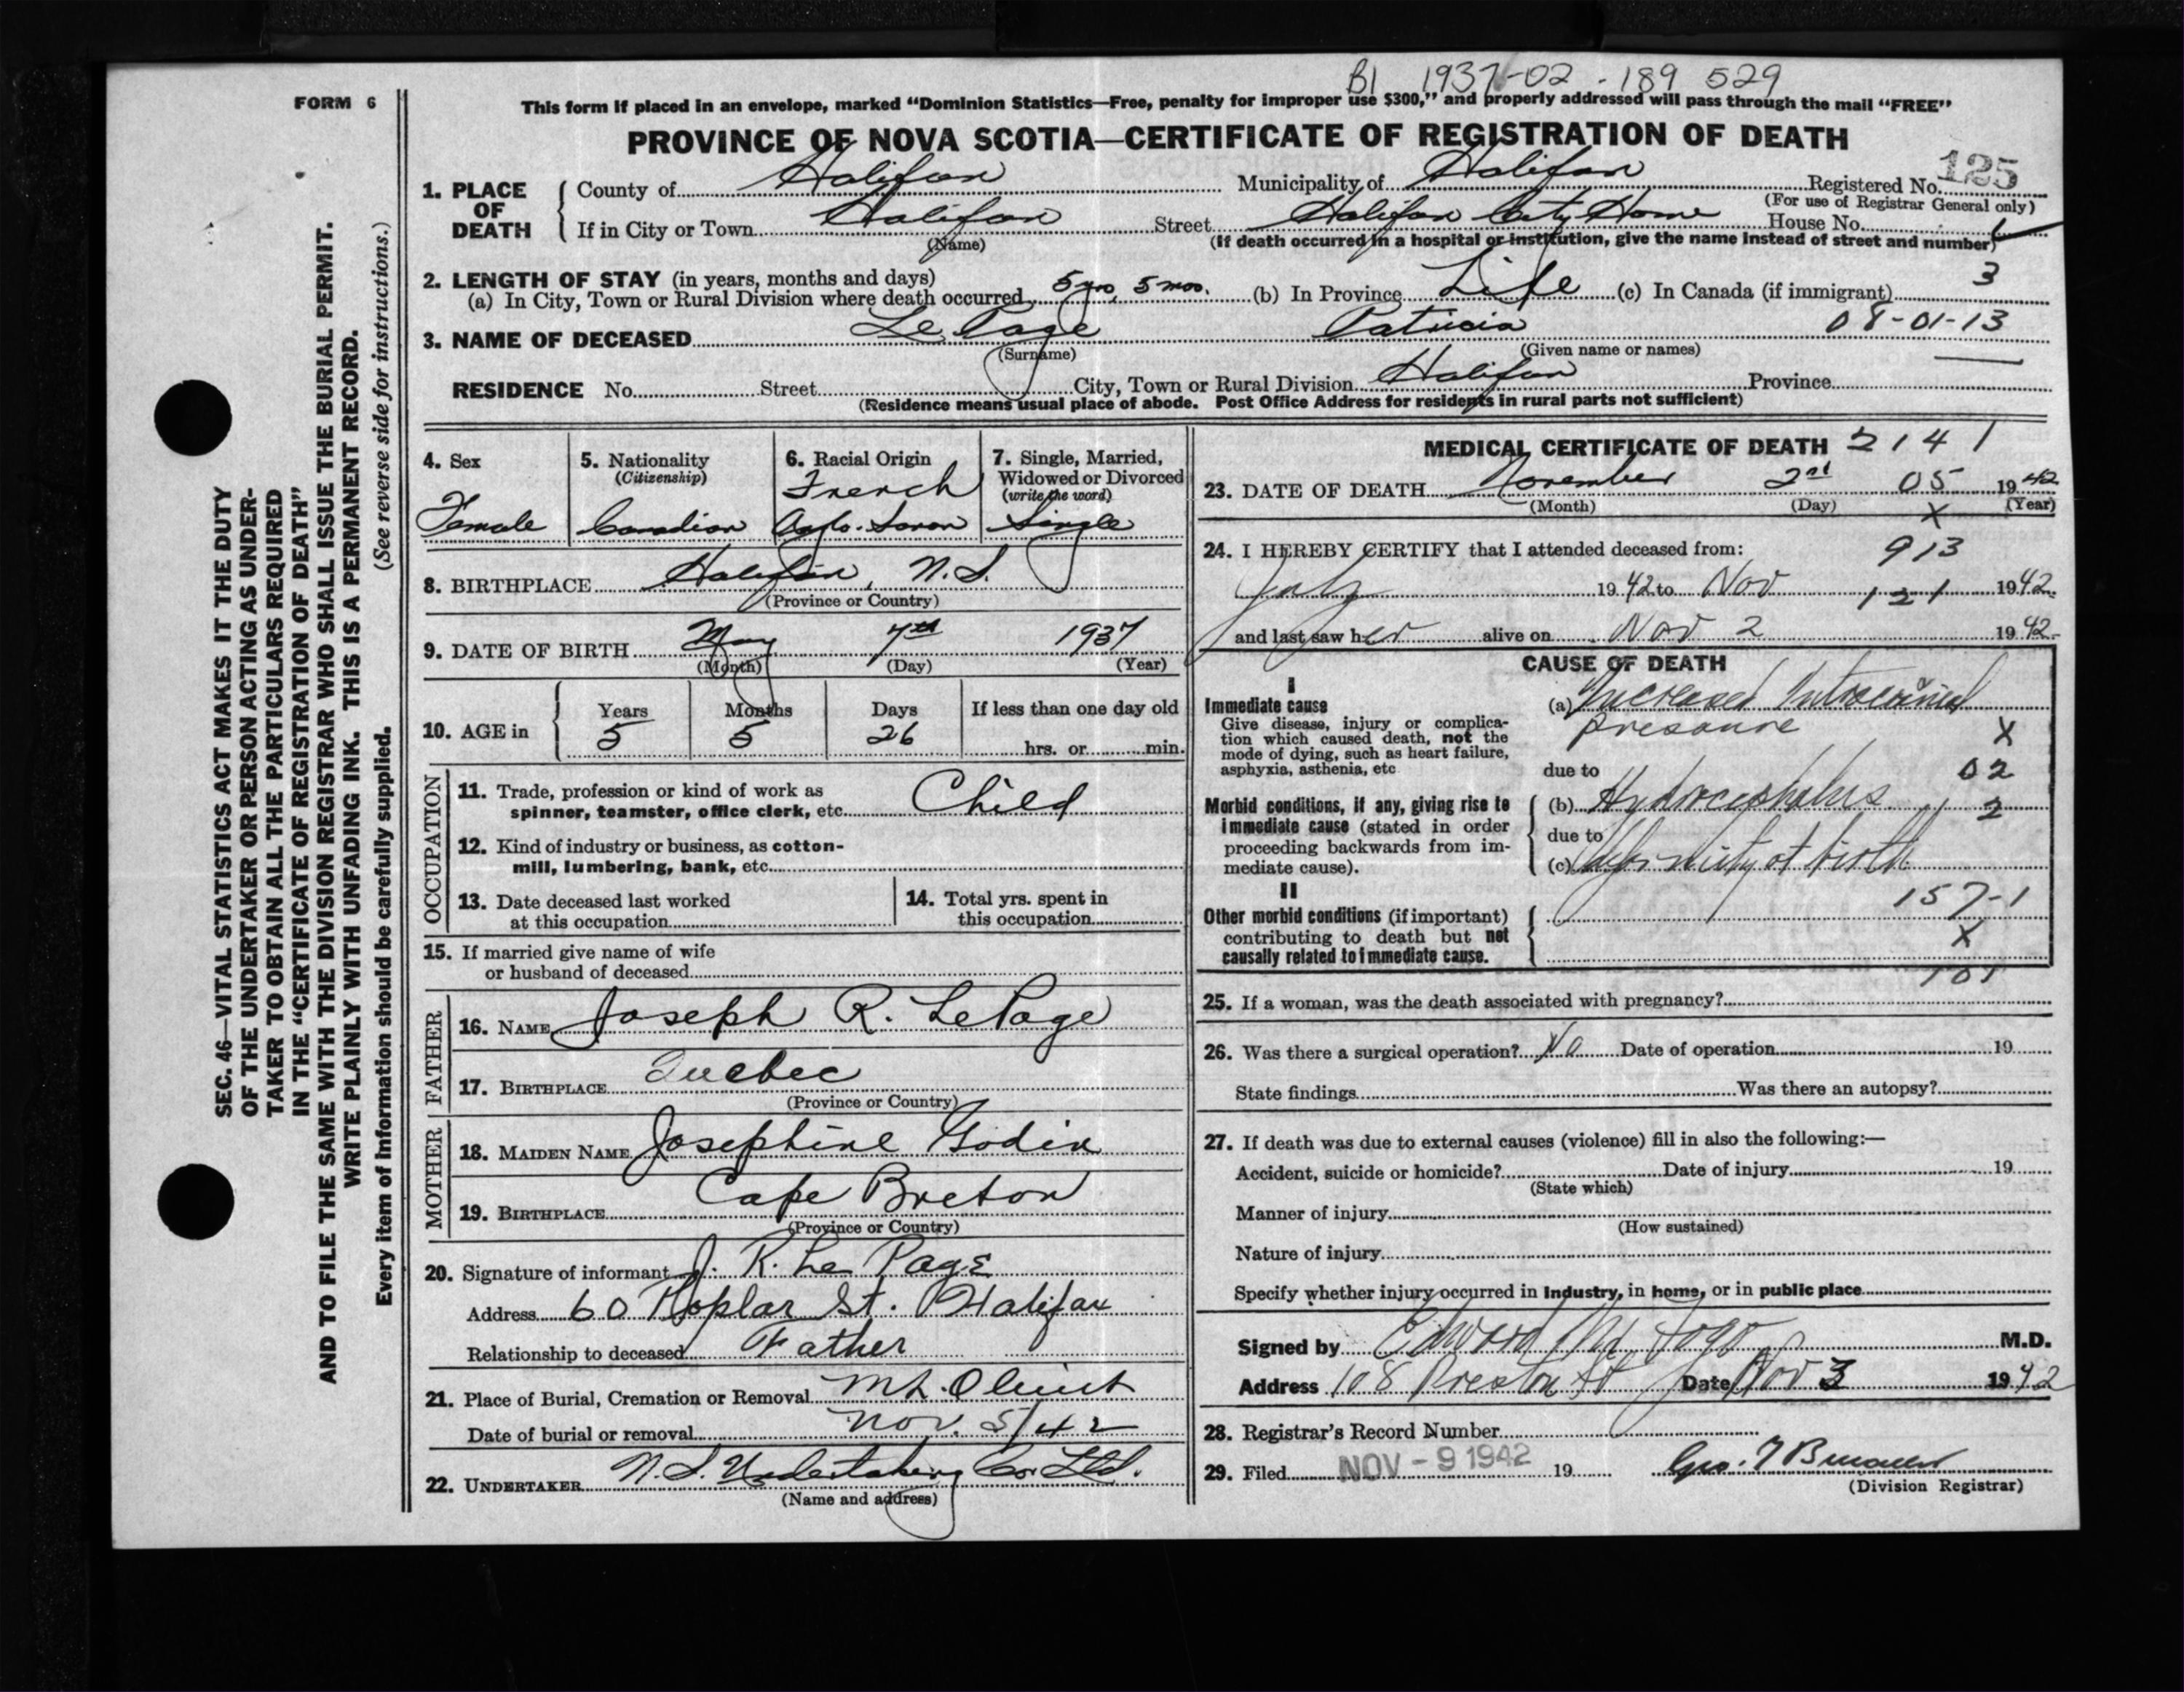 B1 1937-02-189529
FORM 6
This form if placed in an envelope, marked “Dominion Statistics—Free, penalty for improper use $300,” and properly addressed will pass through the mail “FREE”
PROVINCE OF NOVA SCOTIA—CERTIFICATE OF REGISTRATION OF DEATH
1. PLACE OF DEATH
County of Halifax Municipality of Halifax Registered No. 125
(For use of Registrar General only)
If in City or Town Halifax Street Halifax City Home House No.
(Name) (If death occurred in a hospital or institution, give the name instead of street and number)
2. LENGTH OF STAY (in years, months and days) 3
(a) In City, Town or Rural Division where death occurred 5 yrs, 5 mos. (b) In Province Life (c) In Canada (if immigrant)
3. NAME OF DECEASED Le Page Patricia 08-01-13
(Surname) (Given name or names)
RESIDENCE No. Street City, Town or Rural Division Halifax Province
(Residence means usual place of abode. Post Office Address for residents in rural parts not sufficient)
4. Sex
Female
5. Nationality
(Citizenship)
Canadian
6. Racial Origin
French
Anglo. Saxon
7. Single, Married,
Widowed or Divorced
(write the word)
Single
8. BIRTHPLACE Halifax, N.S.
(Province or Country)
9. DATE OF BIRTH May 7th 1937
(Month) (Day) (Year)
10. AGE in
Years Months Days If less than one day old
5 5 26 hrs. or min.
OCCUPATION
11. Trade, profession or kind of work as
spinner, teamster, office clerk, etc. Child
12. Kind of industry or business, as cotton-
mill, lumbering, bank, etc.
13. Date deceased last worked
at this occupation
14. Total yrs. spent in
this occupation
15. If married give name of wife
or husband of deceased
FATHER
16. NAME Joseph R. LePage
17. BIRTHPLACE Quebec
(Province or Country)
MOTHER
18. MAIDEN NAME Josephine Godin
19. BIRTHPLACE Cape Breton
(Province or Country)
20. Signature of informant J. R. Le Page
Address 60 Poplar St. Halifax
Relationship to deceased Father
21. Place of Burial, Cremation or Removal Mt. Olivet
Date of burial or removal Nov. 5/42
22. UNDERTAKER N.S. Undertaking Co. Ltd.
(Name and address)
MEDICAL CERTIFICATE OF DEATH 2141
23. DATE OF DEATH November 2nd 05 1942
(Month) (Day) (Year)
X
24. I HEREBY CERTIFY that I attended deceased from: 913
July 1942 to Nov 121 1942
and last saw her alive on Nov 2 1942
CAUSE OF DEATH
I
Immediate cause
Give disease, injury or complica-
tion which caused death, not the
mode of dying, such as heart failure,
asphyxia, asthenia, etc
(a) Increased Intracranial
pressure X
due to 02
Morbid conditions, if any, giving rise to
immediate cause (stated in order
proceeding backwards from im-
mediate cause).
(b) Hydrocephalus 2
due to
(c) Deformity at birth
157-1
II
Other morbid conditions (if important)
contributing to death but not
causally related to immediate cause.
X
101
25. If a woman, was the death associated with pregnancy?
26. Was there a surgical operation? No Date of operation 19
State findings Was there an autopsy?
27. If death was due to external causes (violence) fill in also the following:—
Accident, suicide or homicide? Date of injury 19
(State which)
Manner of injury
(How sustained)
Nature of injury
Specify whether injury occurred in Industry, in home, or in public place
Signed by Edward M. Fogo M.D.
Address 108 Preston St Date Nov 3 1942
28. Registrar's Record Number
29. Filed NOV - 9 1942 19
(Division Registrar)
SEC. 46—VITAL STATISTICS ACT MAKES IT THE DUTY
OF THE UNDERTAKER OR PERSON ACTING AS UNDER-
TAKER TO OBTAIN ALL THE PARTICULARS REQUIRED
IN THE “CERTIFICATE OF REGISTRATION OF DEATH”
AND TO FILE THE SAME WITH THE DIVISION REGISTRAR WHO SHALL ISSUE THE BURIAL PERMIT.
WRITE PLAINLY WITH UNFADING INK. THIS IS A PERMANENT RECORD.
Every item of information should be carefully supplied. (See reverse side for instructions.)